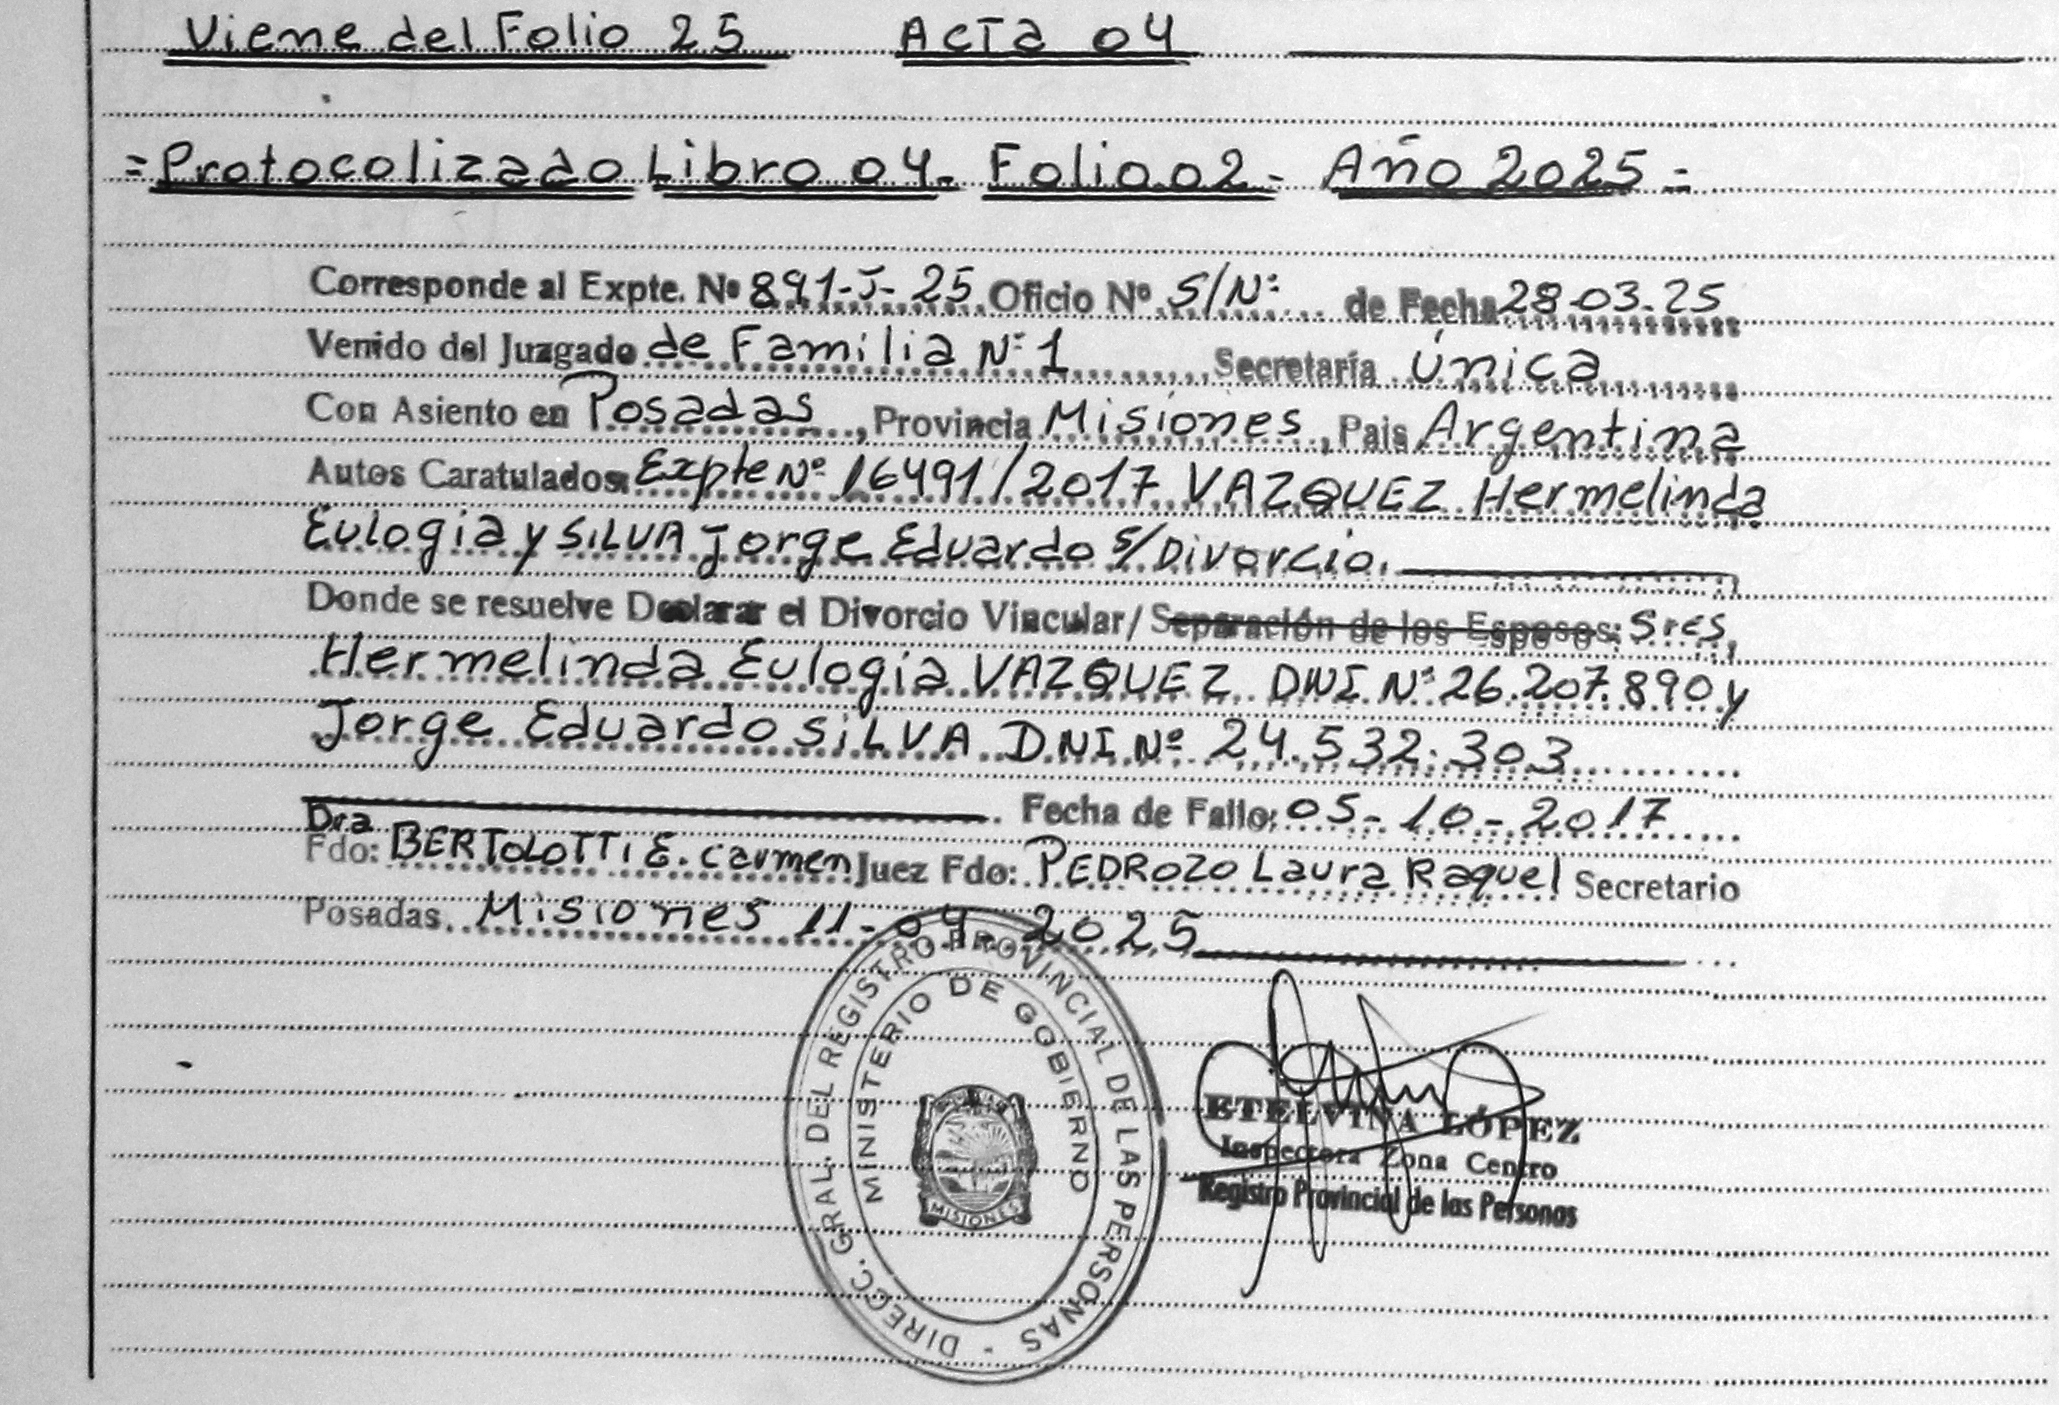 Viene del Folio 25 Acta 04
=Protocolizado Libro 04- Folio 02- Año 2025=
Corresponde al Expte. Nº 891-J-25 Oficio Nº S/Nº de Fecha 28-03-25
Venido del Juzgado de Familia Nº 1, Secretaría Única
Con Asiento en Posadas, Provincia Misiones, Pais Argentina
Autos Caratulados: Expte Nº 16491/2017 VAZQUEZ Hermelinda
Eulogia y SILVA Jorge Eduardo S/Divorcio.
Donde se resuelve Declarar el Divorcio Vincular/Separación de los Esposos: Sres,
Hermelinda Eulogia VAZQUEZ DNI Nº 26.207.890 y
Jorge Eduardo SILVA DNI Nº 24.532.303
Fecha de Fallo: 05-10-2017
Dra
Fdo: BERTOLOTTI E. Carmen Juez Fdo: PEDROZO Laura Raquel Secretario
Posadas, Misiones 11-04-2025
DIRECC. GRAL. DEL REGISTRO PROVINCIAL DE LAS PERSONAS -
MINISTERIO DE GOBIERNO
MISIONES
ETELVINA LÓPEZ
Inspectora Zona Centro
Registro Provincial de las Personas